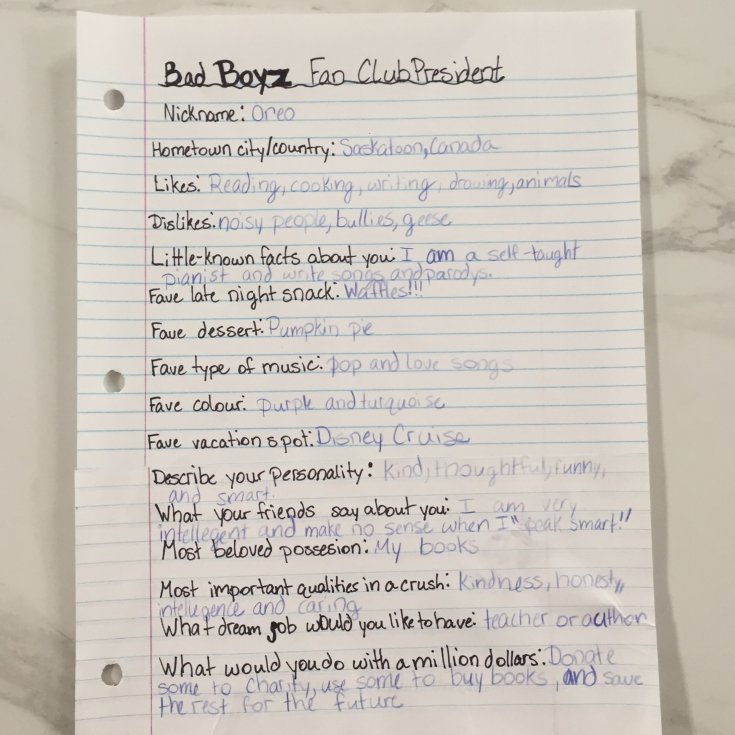 Bad Boyz Fan Club President
Nickname: Oreo
Hometown city/country: Saskatoon, Canada
Likes: Reading, cooking, writing, drawing, animals
Dislikes: noisy people, bullies, geese
Little-known facts about you: I am a self-taught
pianist and write songs and parodys.
Fave late night snack: Waffles!!!
Fave dessert: Pumpkin pie
Fave type of music: pop and love songs
Fave colour: purple and turquoise
Fave vacation spot: Disney Cruise
Describe your personality: Kind, thoughtful, funny,
and smart.
What your friends say about you: I am very
intellegent and make no sense when I "speak smart!"
Most beloved possesion: My books
Most important qualities in a crush: Kindness, honesty,
intelligence and caring
What dream job would you like to have: teacher or author
What would you do with a million dollars: Donate
some to charity, use some to buy books, and save
the rest for the future